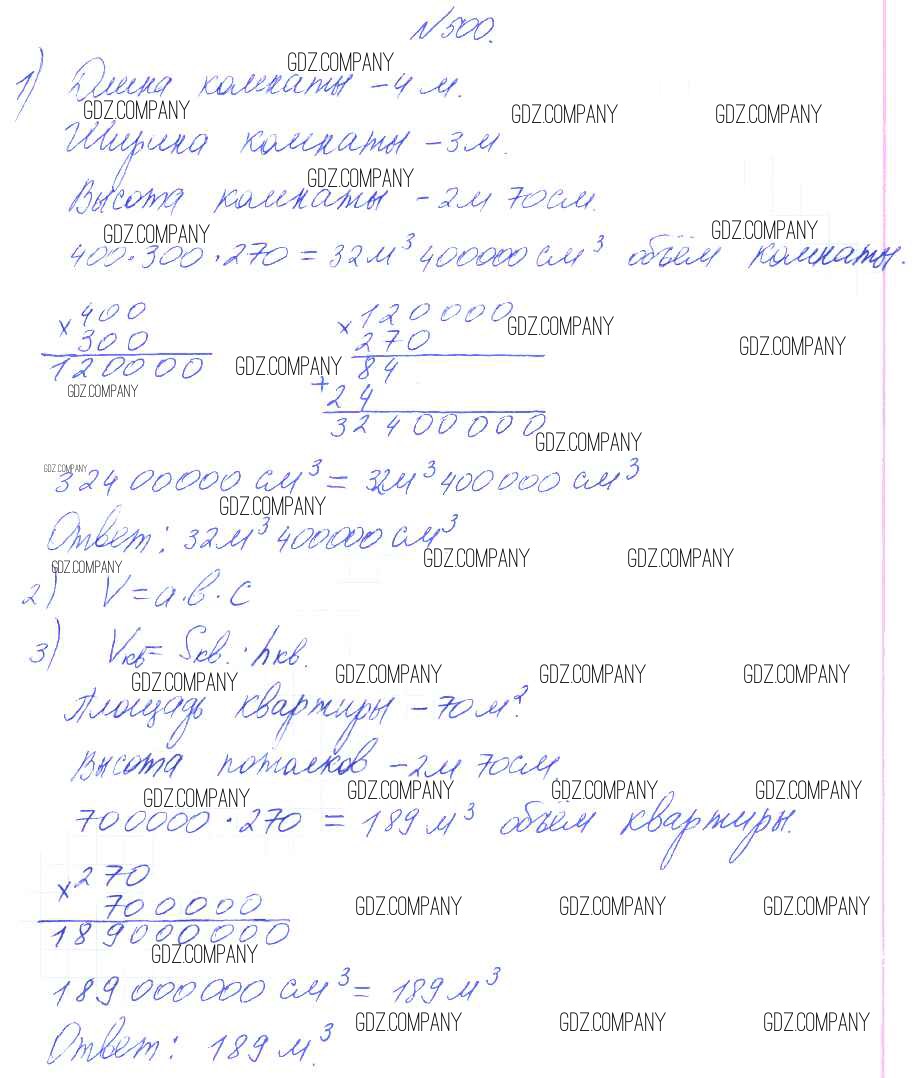 №500.
GDZ.COMPANY
1) Длина комнаты – 4 м.
GDZ.COMPANY GDZ.COMPANY GDZ.COMPANY
Ширина комнаты – 3м.
GDZ.COMPANY
Высота комнаты – 2м 70см.
GDZ.COMPANY GDZ.COMPANY
400·300·270 = 32м³ 400000 см³ объём комнаты.
400 120000
GDZ.COMPANY
× 300 × 270
GDZ.COMPANY
120000 84
GDZ.COMPANY
GDZ.COMPANY
+ 24
32400000
GDZ.COMPANY
GDZ.COMPANY
32400000 см³ = 32м³ 400000 см³
GDZ.COMPANY
Ответ: 32м³ 400000 см³
GDZ.COMPANY GDZ.COMPANY GDZ.COMPANY
2) V = a·b·c
3) Vкв = Sкв. · hкв.
GDZ.COMPANY GDZ.COMPANY GDZ.COMPANY GDZ.COMPANY
Площадь квартиры – 70 м².
Высота потолков – 2м 70см.
GDZ.COMPANY GDZ.COMPANY GDZ.COMPANY GDZ.COMPANY
700000 · 270 = 189 м³ объём квартиры.
× 270
700000
GDZ.COMPANY GDZ.COMPANY GDZ.COMPANY
189000000
GDZ.COMPANY
189000000 см³ = 189 м³
GDZ.COMPANY GDZ.COMPANY GDZ.COMPANY
Ответ: 189 м³.